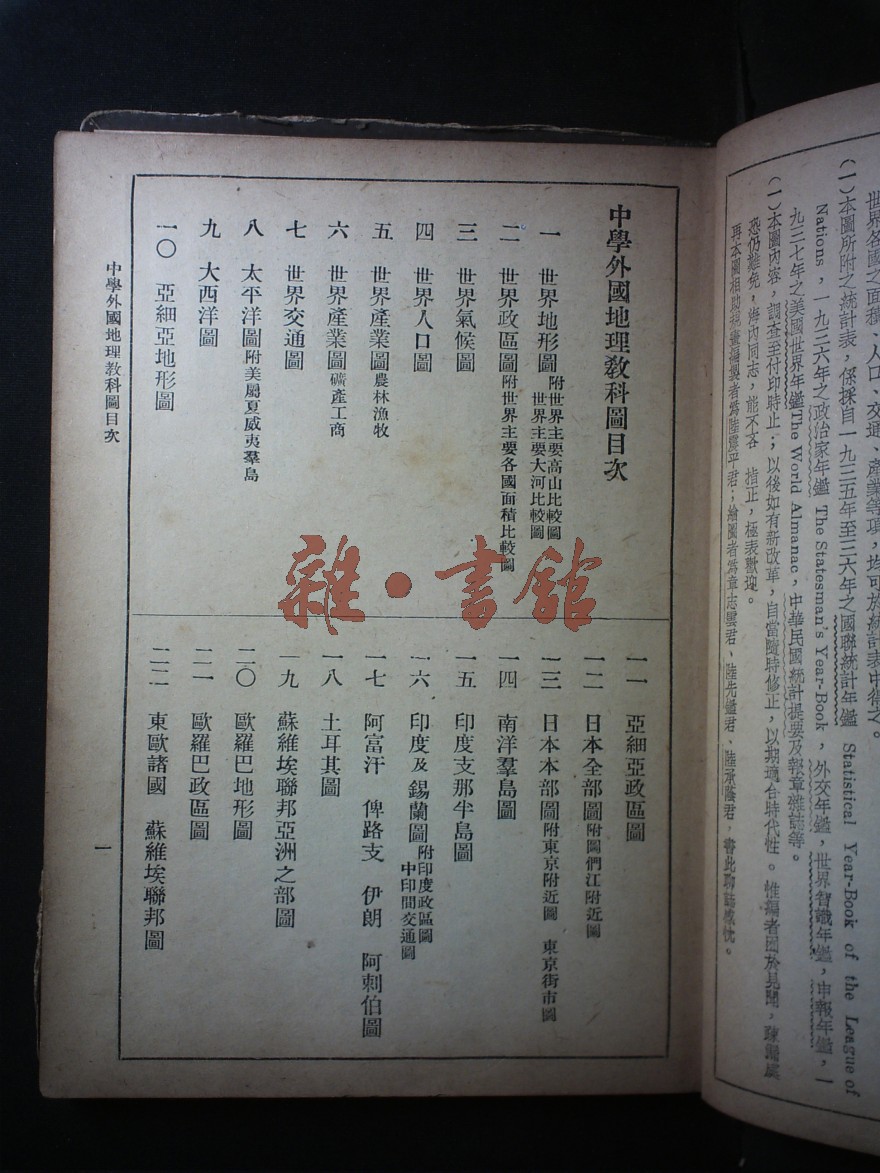 世界各國之面積、人口、交通、產業等項，均可於統計表中得之。
(一)本圖所附之統計表，係採自一九三五年至三六年之國聯統計年鑑 Statistical Year-Book of the League of
Nations，一九三六年之政治家年鑑 The Statesman's Year-Book，外交年鑑，世界智識年鑑，申報年鑑，一
九三七年之美國世界年鑑The World Almanac，中華民國統計提要及報章雜誌等。
(一)本圖內容，調查至付印時止；以後如有新改革，自當隨時修正，以期適合時代性。惟編者囿於見聞，疎漏處
恐仍難免，海內同志，能不吝 指正，極表歡迎。
再本圖相助規畫編製者爲陸震平君；繪圖者爲章志雲君、陸先鑑君、陸承蔭君，書此聊誌感忱。
中學外國地理教科圖目次
一 世界地形圖附世界主要高山比較圖 世界主要大河比較圖
二 世界政區圖附世界主要各國面積比較圖
三 世界氣候圖
四 世界人口圖
五 世界產業圖農林漁牧
六 世界產業圖礦產工商
七 世界交通圖
八 太平洋圖附美屬夏威夷羣島
九 大西洋圖
一〇 亞細亞地形圖
一一 亞細亞政區圖
一二 日本全部圖附圖們江附近圖
一三 日本本部圖附東京附近圖 東京街市圖
一四 南洋羣島圖
一五 印度支那半島圖
一六 印度及錫蘭圖附印度政區圖 中印間交通圖
一七 阿富汗 俾路支 伊朗 阿剌伯圖
一八 土耳其圖
一九 蘇維埃聯邦亞洲之部圖
二〇 歐羅巴地形圖
二一 歐羅巴政區圖
二二 東歐諸國 蘇維埃聯邦圖
中學外國地理教科圖目次
一
雜·書館